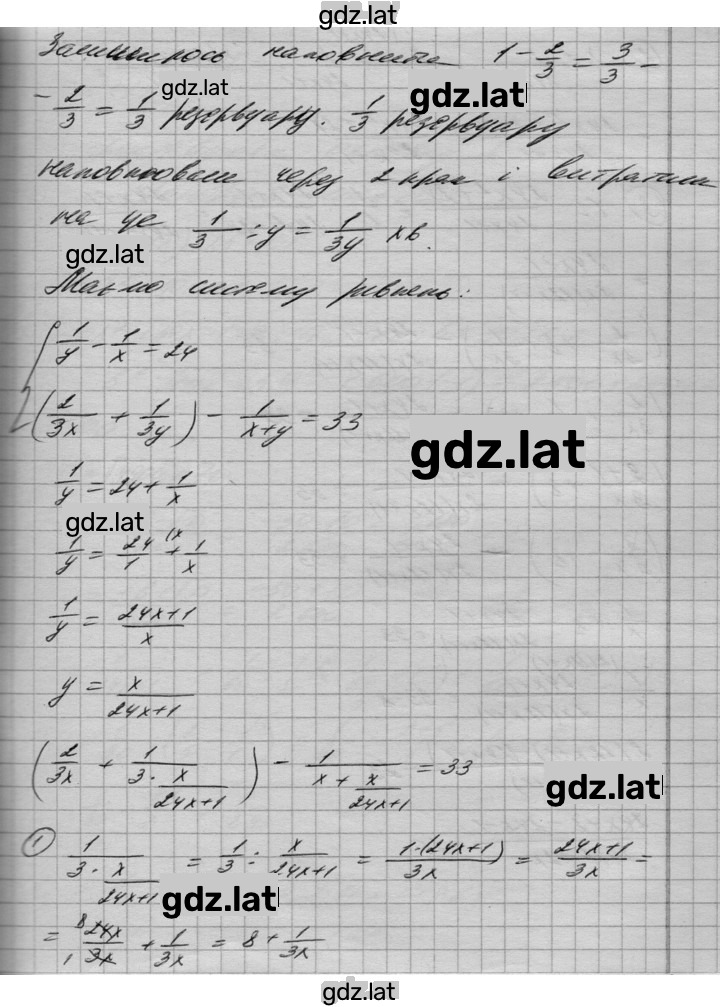 gdz.lat
Залишилось наповнити 1 - 2/3 = 3/3 -
gdz.lat
gdz.lat
- 2/3 = 1/3 резервуару. 1/3 резервуару
наповнювали через 2 кран і витратили
на це 1/3 : y = 1/(3y) хв.
gdz.lat
Маємо систему рівнень:
{ 1/y - 1/x = 24
(2/(3x) + 1/(3y)) - 1/(x+y) = 33
gdz.lat
1/y = 24 + 1/x
gdz.lat
1/y = 24/1 (x + 1/x
1/y = (24x+1)/x
y = x/(24x+1)
(2/(3x) + 1/(3·x/(24x+1))) - 1/(x + x/(24x+1)) = 33
gdz.lat
① 1/(3·x/(24x+1)) = 1/3 : x/(24x+1) = 1·(24x+1)/(3x) = (24x+1)/(3x) =
gdz.lat
= 8 24x/(1 3x) + 1/(3x) = 8 + 1/(3x)
gdz.lat